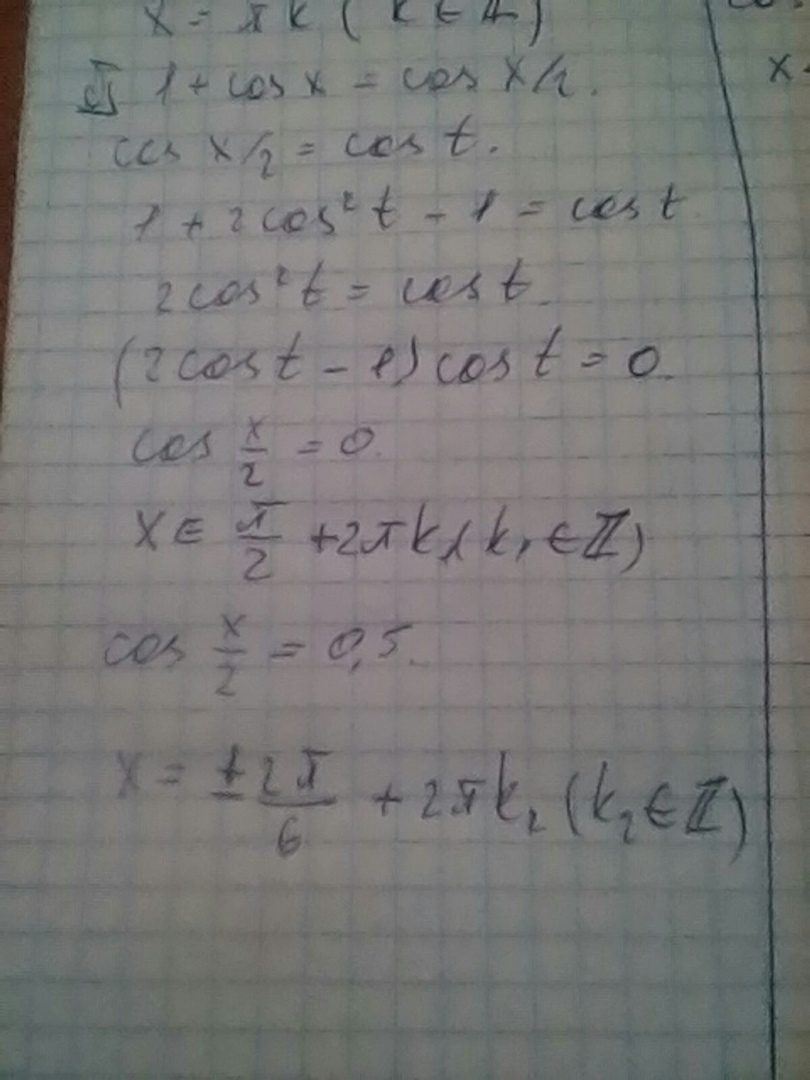 x = πk ( k ∈ Z )
1 + cos x = cos x/2.
cos x/2 = cos t.
1 + 2cos² t - 1 = cos t
2cos² t = cos t.
(2cos t - 1) cos t = 0.
cos x/2 = 0.
x ∈ π/2 + 2πk₁ (k₁ ∈ Z)
cos x/2 = 0,5.
x = ± 2π/6 + 2πk₂ (k₂ ∈ Z)
x